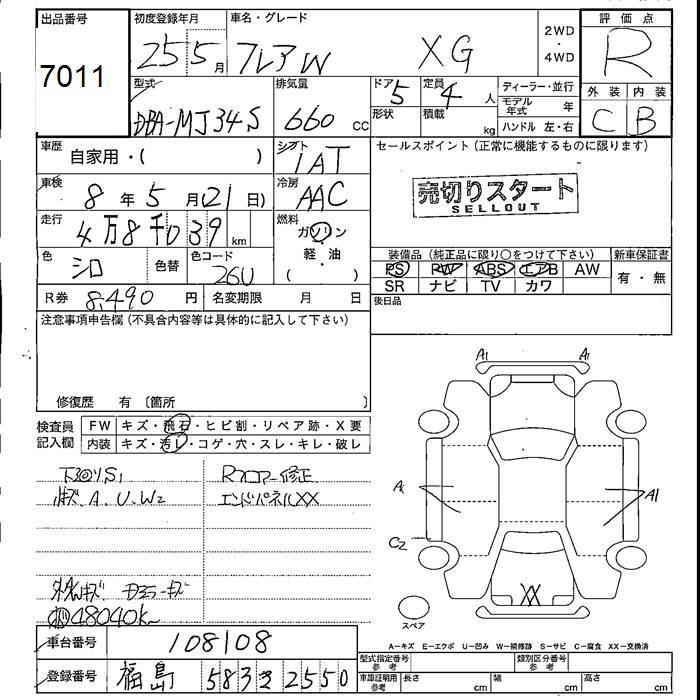 出品番号
7011
初度登録年月
25 5月
車名・グレード
フレアW XG
2WD
・
4WD
評価点
R
外装 内装
C B
型式
DBA-MJ34S
排気量
660 CC
ドア 5
定員 4 人
形状
積載 kg
ディーラー・並行
モデル年式 年
ハンドル 左・右
車歴
自家用・( )
シフト
IAT
セールスポイント(正常に機能するものに限ります)
売切りスタート
SELLOUT
車検
8年5月(21日)
冷房
AAC
走行
4万8千039km
燃料
ガソリン
・
軽・油
( )
色
シロ
色替
色コード
26U
装備品(純正品に限り○をつけて下さい)
PS RW ABS エアB AW
SR ナビ TV カワ
新車保証書
有・無
R券 8,490円
名変期限 月 日
後日品
注意事項申告欄(不具合内容等は具体的に記入して下さい)
修復歴 有〔箇所 〕
検査員
記入欄
FW キズ・飛石・ヒビ割・リペア跡・X要
内装 キズ・汚レ・コゲ・穴・スレ・キレ・破レ
下回りS1
Rフロアー修正
A.U.W2
エンドパネルXX
48040k
車台番号
108108
登録番号
福島 583 き 2550
A1 A1
A
A1
C2
XX
スペア
A-キズ E-エクボ U-凹み W-補修跡 S-サビ C-腐食 XX-交換済
型式指定番号
参考
類別区分番号
参考
車庫証明用
参考
長さ cm
幅 cm
高さ cm